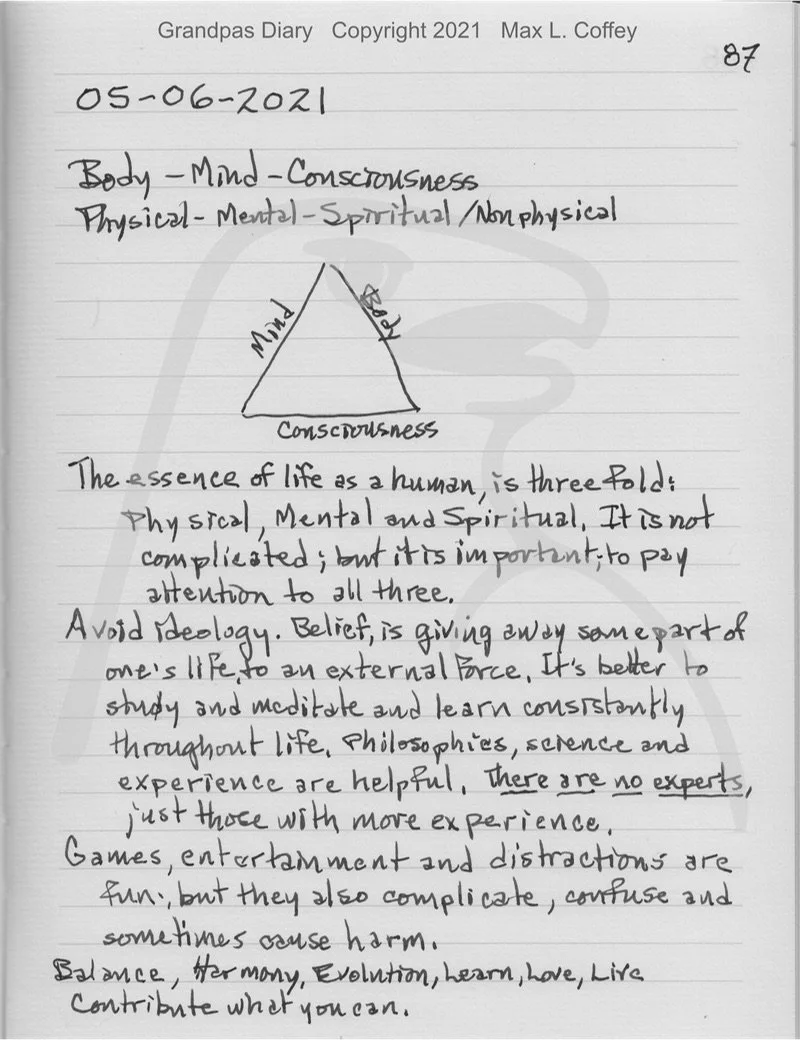 Grandpas Diary Copyright 2021 Max L. Coffey
87
05-06-2021
Body - Mind - Consciousness
Physical - Mental - Spiritual / Nonphysical
Mind
Body
Consciousness
The essence of life as a human, is three fold:
Physical, Mental and Spiritual. It is not
complicated; but it is important; to pay
attention to all three.
Avoid ideology. Belief, is giving away some part of
one's life, to an external force. It's better to
study and meditate and learn consistantly
throughout life. Philosophies, science and
experience are helpful. There are no experts,
just those with more experience.
Games, entertainment and distractions are
fun; but they also complicate, confuse and
sometimes cause harm.
Balance, Harmony, Evolution, Learn, Love, Live
Contribute what you can.